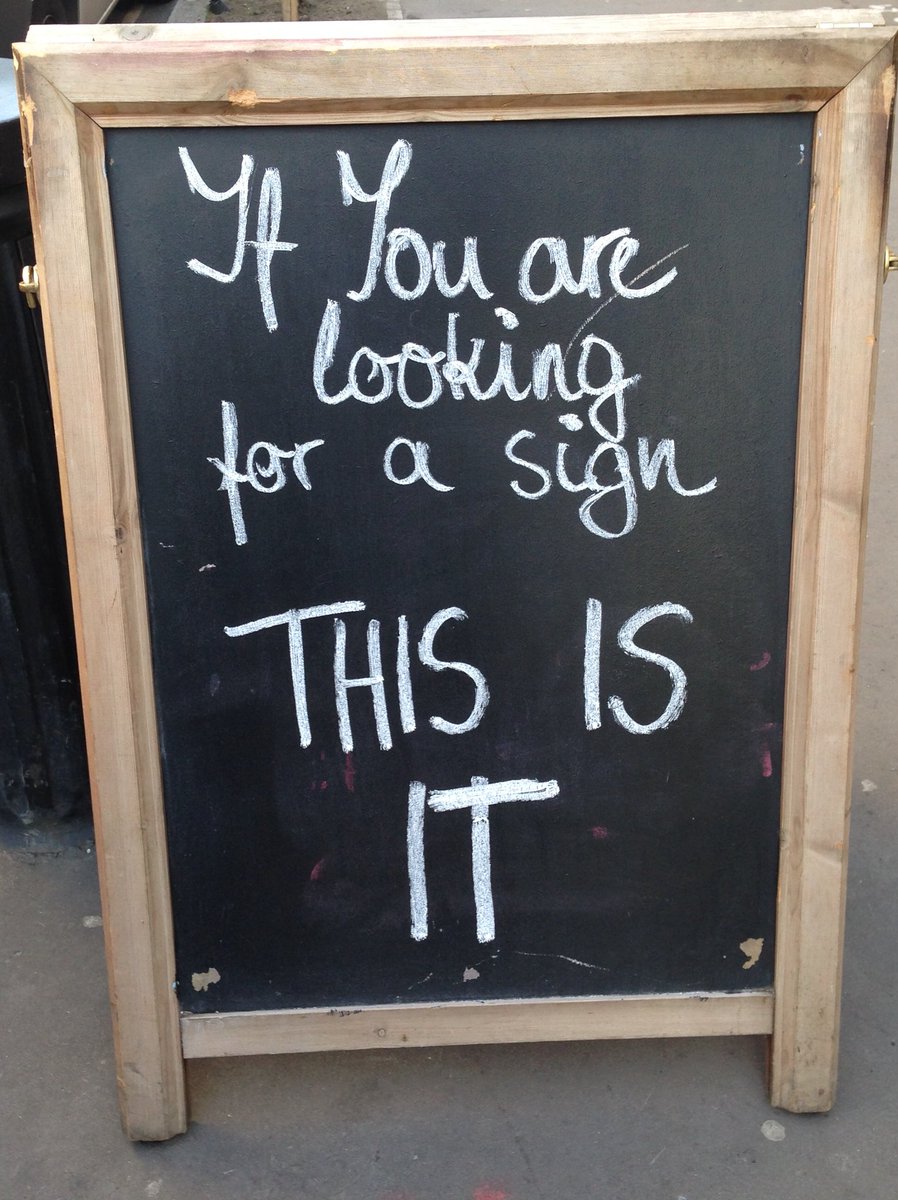 If You are
looking
for a sign
THIS IS
IT